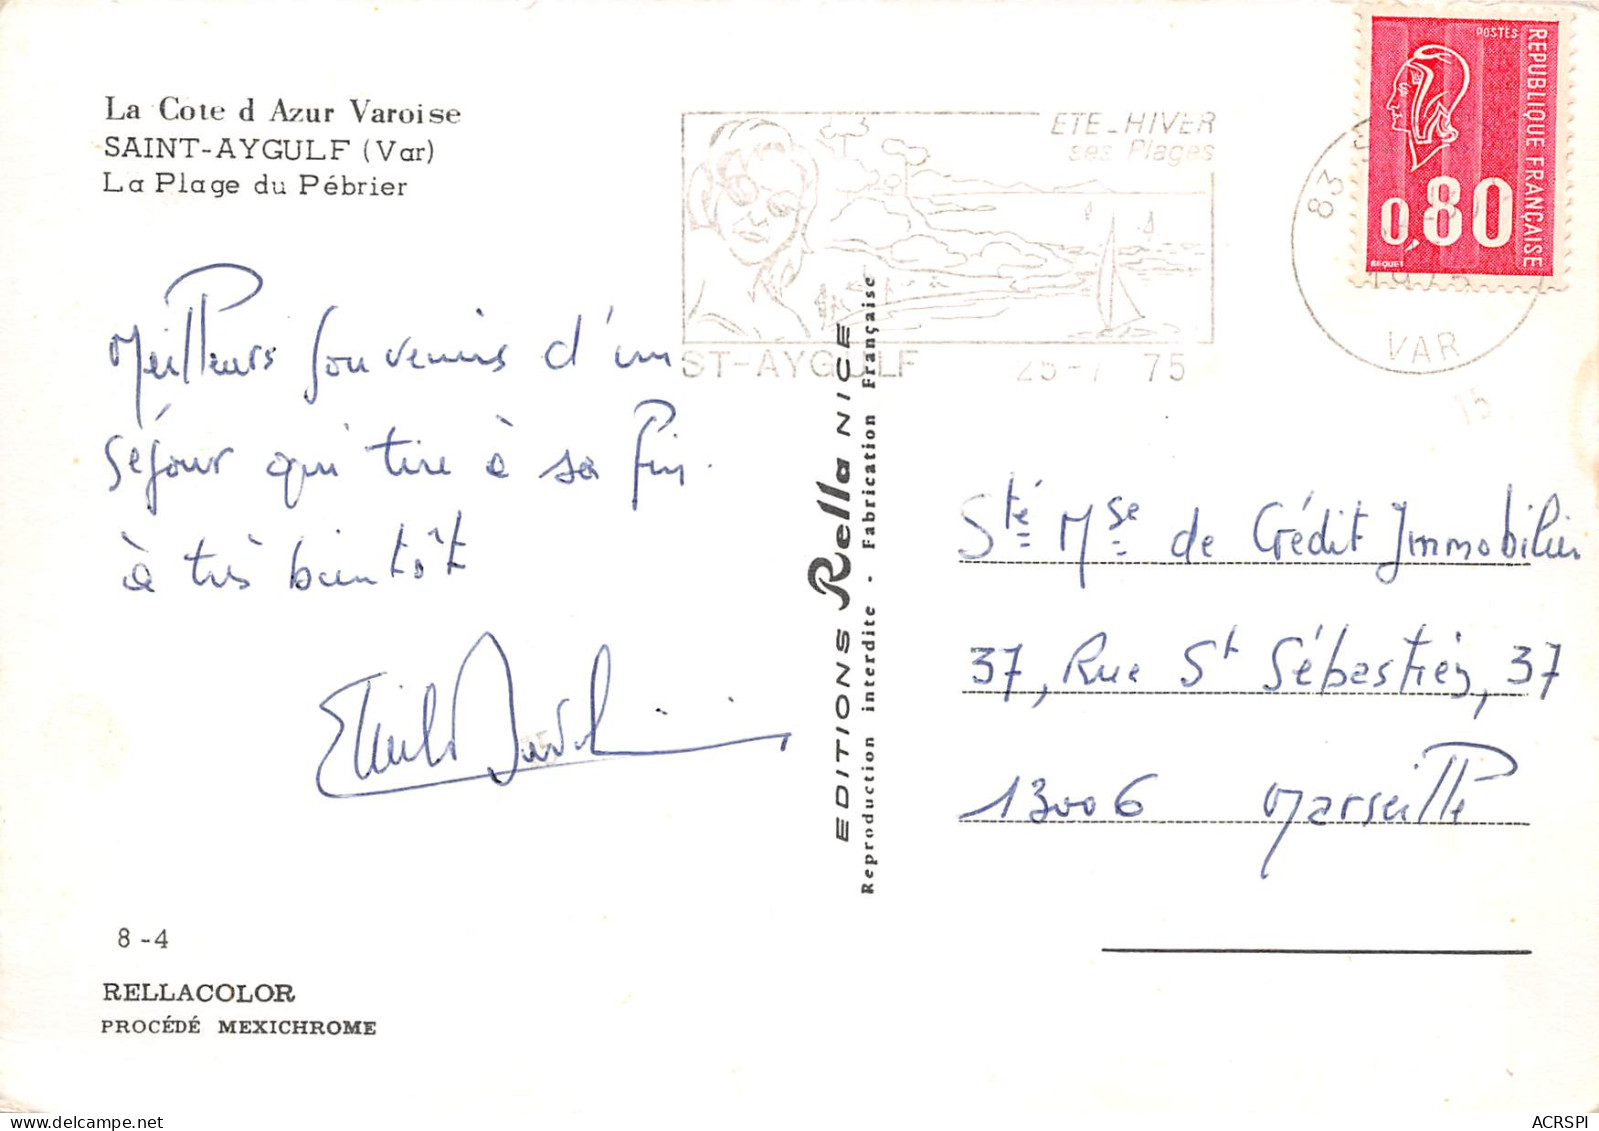 La Cote d Azur Varoise
SAINT-AYGULF (Var)
La Plage du Pébrier
Meilleurs souvenirs d'un
séjour qui tire à sa fin.
à très bientôt
8-4
RELLACOLOR
PROCÉDÉ MEXICHROME
EDITIONS Rella NICE
Reproduction interdite - Fabrication Française
ETE-HIVER
ses Plages
ST-AYGULF 25-7 75
83
1975
VAR
POSTES
REPUBLIQUE FRANÇAISE
0,80
BEQUET
15
Sté Mse de Crédit Immobilier
37, Rue St Sébastien, 37
13006 Marseille
ACRSPI